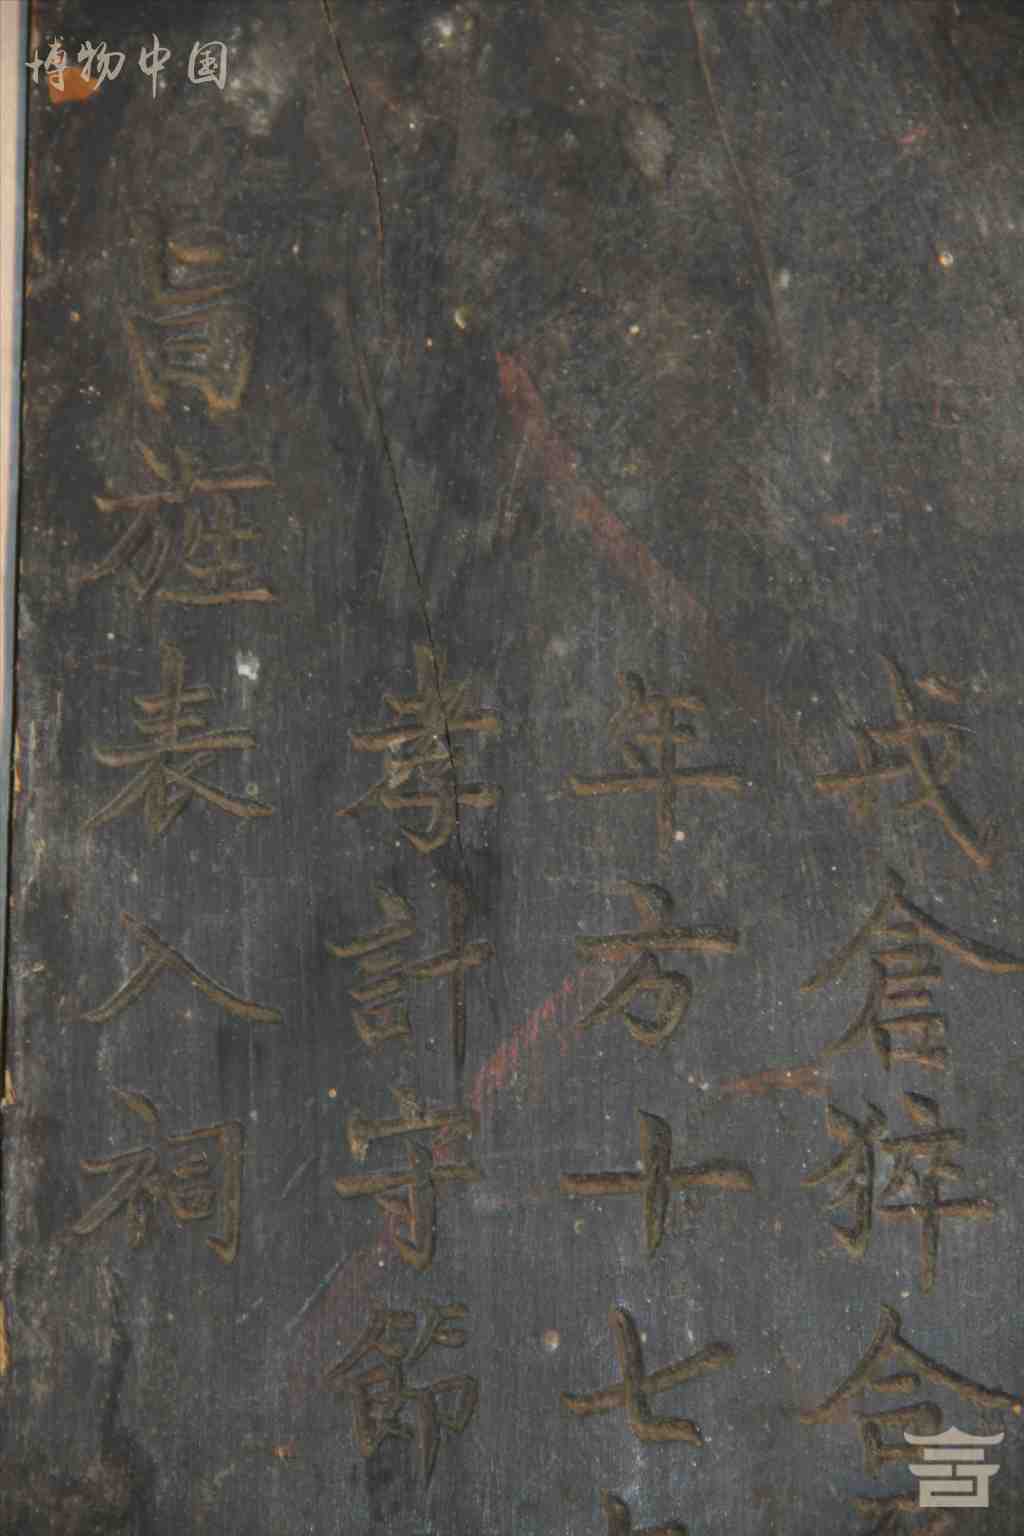 博物中国
戍倉猝合
年方十七
孝計守節
旨旌表入祠